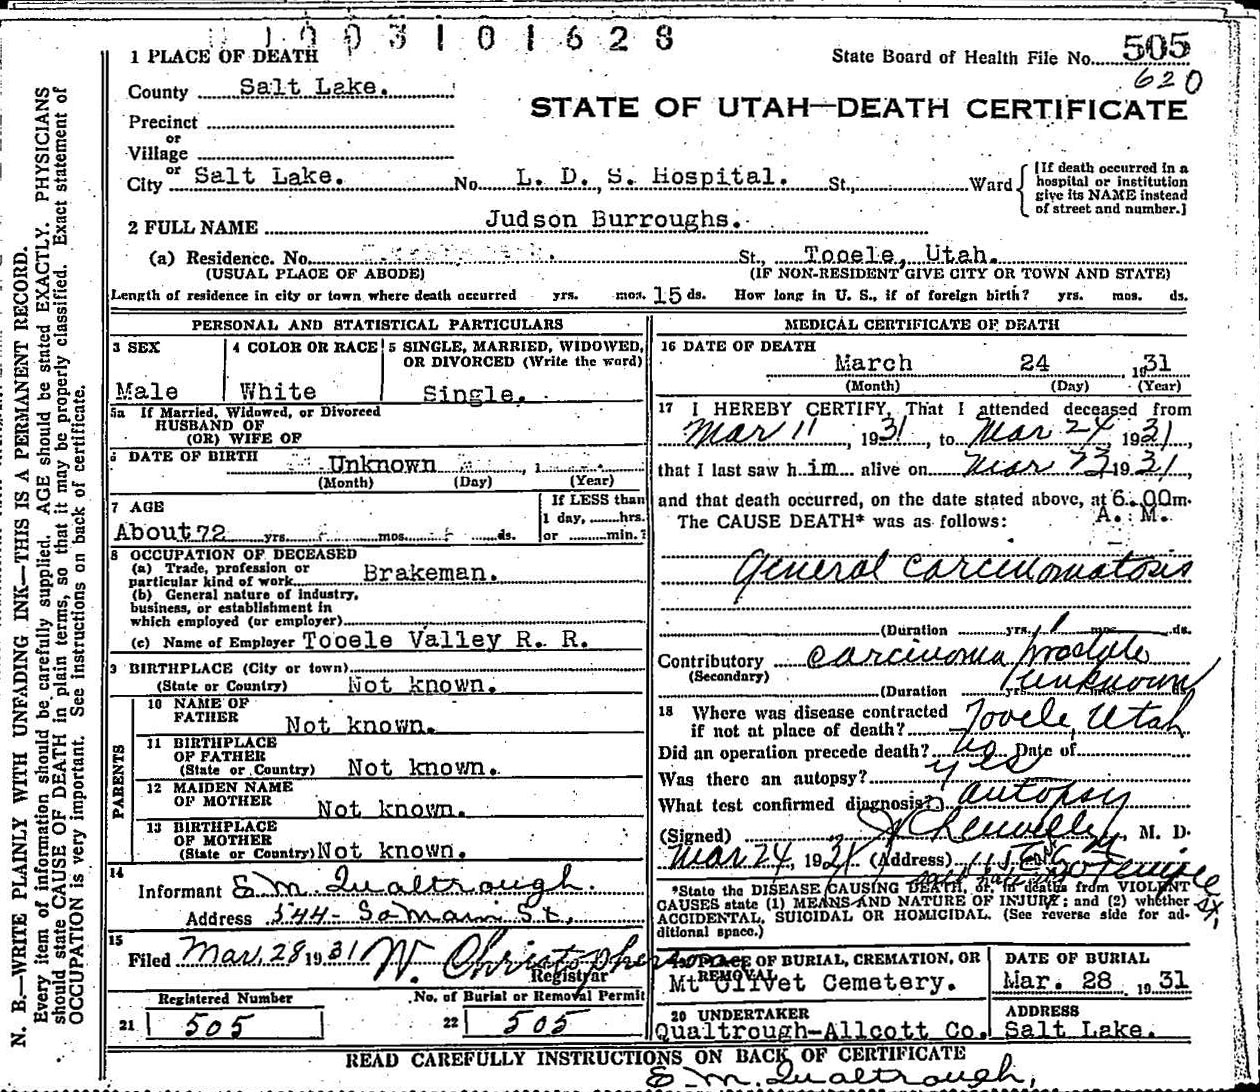 1003101628
1 PLACE OF DEATH
State Board of Health File No. 505
620
County Salt Lake.
STATE OF UTAH—DEATH CERTIFICATE
Precinct
or
Village
or
City Salt Lake. No. L. D. S. Hospital. St., Ward
[If death occurred in a
hospital or institution
give its NAME instead
of street and number.]
2 FULL NAME Judson Burroughs.
(a) Residence. No. St., Tooele, Utah.
(USUAL PLACE OF ABODE) (IF NON-RESIDENT GIVE CITY OR TOWN AND STATE)
Length of residence in city or town where death occurred yrs. mos. 15 ds. How long in U. S., if of foreign birth? yrs. mos. ds.
PERSONAL AND STATISTICAL PARTICULARS
3 SEX
Male
4 COLOR OR RACE
White
5 SINGLE, MARRIED, WIDOWED,
OR DIVORCED (Write the word)
Single.
5a If Married, Widowed, or Divorced
HUSBAND OF
(OR) WIFE OF
6 DATE OF BIRTH Unknown , 1
(Month) (Day) (Year)
7 AGE
About 72 yrs. mos. ds.
If LESS than
1 day, hrs.
or min.?
8 OCCUPATION OF DECEASED
(a) Trade, profession or
particular kind of work Brakeman.
(b) General nature of industry,
business, or establishment in
which employed (or employer)
(c) Name of Employer Tooele Valley R. R.
9 BIRTHPLACE (City or town)
(State or Country) Not known.
PARENTS
10 NAME OF
FATHER Not known.
11 BIRTHPLACE
OF FATHER
(State or Country) Not known.
12 MAIDEN NAME
OF MOTHER Not known.
13 BIRTHPLACE
OF MOTHER
(State or Country) Not known.
14
Informant E. M. Qualtrough.
Address 544 So Main St.
15
Filed Mar. 28 1931 W. Christopherson
Registrar
Registered Number
21 505
No. of Burial or Removal Permit
22 505
MEDICAL CERTIFICATE OF DEATH
16 DATE OF DEATH
March 24 1931
(Month) (Day) (Year)
17 I HEREBY CERTIFY, That I attended deceased from
Mar 11, 1931, to Mar 24, 1931,
that I last saw him alive on Mar 23 1931,
and that death occurred, on the date stated above, at 6.00m.
The CAUSE DEATH* was as follows: A. M.
General carcinomatosis
(Duration yrs. mos. ds.
Contributory carcinoma prostate
(Secondary)
(Duration yrs. unknown
18 Where was disease contracted
if not at place of death? Tooele, Utah
Did an operation precede death? no Date of
Was there an autopsy? yes
What test confirmed diagnosis? autopsy
(Signed) M. D.
Mar 24, 1931 (Address) Temple St.
*State the DISEASE CAUSING DEATH, or, in deaths from VIOLENT
CAUSES state (1) MEANS AND NATURE OF INJURY; and (2) whether
ACCIDENTAL, SUICIDAL OR HOMICIDAL. (See reverse side for ad-
ditional space.)
19 PLACE OF BURIAL, CREMATION, OR
REMOVAL
Mt Olivet Cemetery.
DATE OF BURIAL
Mar. 28 1931
20 UNDERTAKER
Qualtrough-Allcott Co.
ADDRESS
Salt Lake.
READ CAREFULLY INSTRUCTIONS ON BACK OF CERTIFICATE
E. M. Qualtrough,
N. B.—WRITE PLAINLY WITH UNFADING INK—THIS IS A PERMANENT RECORD.
Every item of information should be carefully supplied. AGE should be stated EXACTLY. PHYSICIANS
should state CAUSE OF DEATH in plain terms, so that it may be properly classified. Exact statement of
OCCUPATION is very important. See instructions on back of certificate.